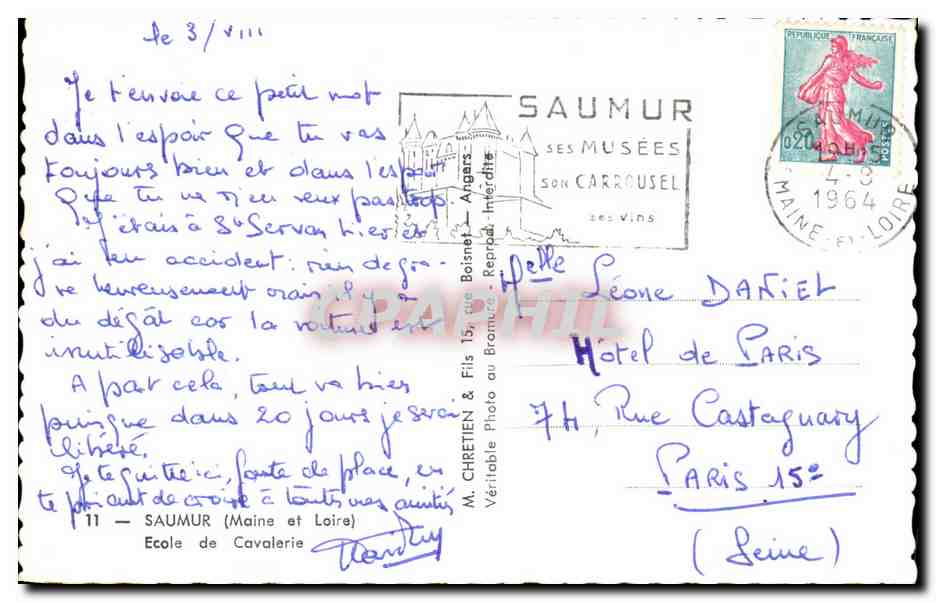 le 3/VIII
Je t'envoie ce petit mot
dans l'espoir que tu vas
toujours bien et dans l'espoir
que tu ne m'en veux pas trop.
J'étais à St Servan hier et
j'ai eu un accident: rien de gra-
ve heureusement mais il y a
du dégât car la voiture est
inutilisable.
A part cela, tout va bien
puisque dans 20 jours je serai
libéré.
Je te quitte ici, faute de place, en
te priant de croire à toutes mes amitiés
11 — SAUMUR (Maine et Loire)
Ecole de Cavalerie
M. CHRETIEN & Fils 15, rue Boisnet — Angers
Véritable Photo au Bromure - Reprod. Interdite
SAUMUR
SES MUSÉES
SON CARROUSEL
SES VINS
REPUBLIQUE FRANÇAISE
0,20
POSTES
SAUMUR
4-8
1964
MAINE-ET-LOIRE
CPARAMA
Melle Léone DANIEL
Hôtel de PARIS
74, Rue Castagnary
PARIS 15e
(Seine)